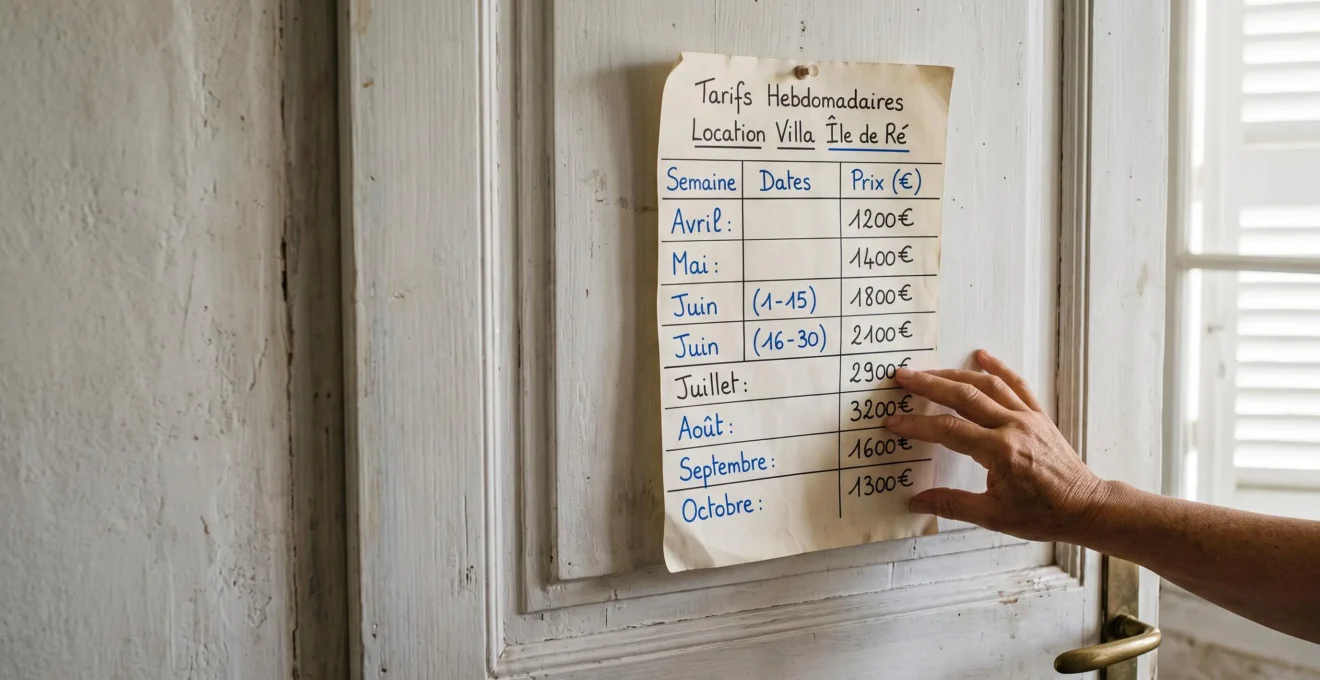 Tarifs Hebdomadaires
Location Villa Île de Ré
Semaine Dates Prix (€)
Avril: 1200€
Mai: 1400€
Juin (1-15) 1800€
Juin (16-30) 2100€
Juillet: 2900€
Août: 3200€
Septembre: 1600€
Octobre: 1300€